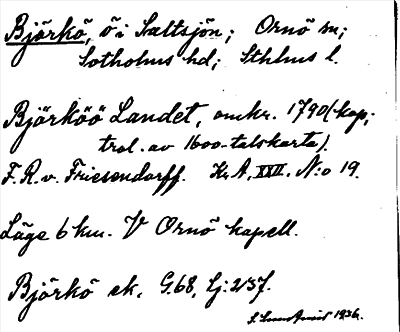 Björkö, ö i Saltsjön; Ornö sn;
Sotholms hd; Sthlms l.
Björköö Landet, omkr. 1790 (kop;
trol. av 1600-talskarta).
F. R. v. Friesendorff. Kr A, XXII. N:o 19.
Läge 6 km. V Ornö kapell.
Björkö ek. G. 68, Lj: 2/37.
1936.